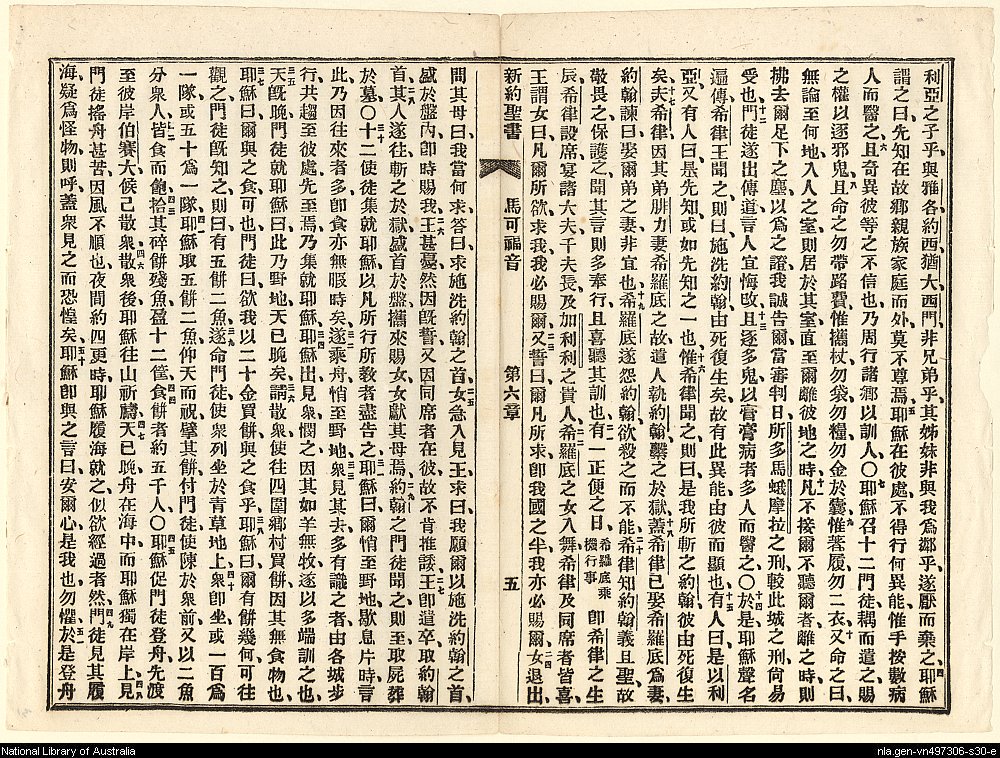 利亞之子乎、與雅各約西猶大西門非兄弟乎、其姊妹非與我爲鄰乎、遂厭而棄之、四耶穌
謂之曰、先知在故鄉親族家庭而外、莫不尊焉、五耶穌在彼處、不得行何異能、惟手按數病
人而醫之、六且奇異彼等之不信也、乃周行諸鄉以訓人、〇七耶穌召十二門徒、耦而遣之、賜
之權以逐邪鬼、八且命之勿帶路費、惟攜杖、勿袋、勿糧、勿金於囊、九惟著履、勿二衣、十又命之曰、
無論至何地、入人之室、則居於其室、直至爾離彼地之時、十一凡不接爾、不聽爾者、離之時、則
拂去爾足下之塵、以爲之證、我誠告爾、當審判日、所多馬蛾摩拉之刑、較此城之刑、尙易
受也、十二門徒遂出傳道、言人宜悔改、十三且逐多鬼、以膏膏病者多人而醫之、〇十四於是耶穌聲名
徧傳、希律王聞之、則曰、施洗約翰由死復生矣、故有此異能由彼而顯也、十五有人曰、是以利
亞、又有人曰、是先知、或如先知之一也、十六惟希律聞之、則曰、是我所斬之約翰、彼由死復生
矣、十七夫希律因其弟腓力妻希羅底之故、遣人執約翰、繫之於獄、蓋希律已娶希羅底爲妻、十八
約翰諫曰、娶爾弟之妻、非宜也、十九希羅底遂怨約翰、欲殺之而不能、二十希律知約翰義且聖、故
敬畏之、保護之、聞其言則多奉行、且喜聽其訓也、二一有一正便之日、希羅底乘機行事卽希律之生
辰、希律設席、宴諸大夫千夫長及加利利之貴人、二二希羅底之女入舞、希律及同席者皆喜、
王謂女曰、凡爾所欲、求我、我必賜爾、二三又誓曰、爾凡所求、卽我國之半、我亦必賜爾、二四女退出、
新約聖書 馬可福音 第六章 五
問其母曰、我當何求、答曰、求施洗約翰之首、二五女急入見王、求曰、我願爾以施洗約翰之首、
盛於盤內、卽時賜我、二六王甚憂、然因旣誓、又因同席者在彼、故不肯推諉、二七王卽遣卒取約翰
首、二八其人遂往、斬之於獄、盛首於盤、攜來賜女、女獻其母焉、二九約翰之門徒聞之、則至取屍葬
於墓、〇三十使徒集就耶穌、以凡所行所敎者、盡告之、三一耶穌曰、爾悄至野地、歇息片時、言
此乃因往來者多、卽食亦無暇時矣、三二遂乘舟悄至野地、三三衆見其去、多有識之者、由各城步
行共趨至彼處、先至焉、乃集就耶穌、三四耶穌出見衆、憫之、因其如羊無牧、遂以多端訓之也、
三五天旣晚、門徒就耶穌曰、此乃野地、天已晚矣、三六請散衆、使往四圍鄉村買餅、因其無食物也、
三七耶穌曰、爾與之食可也、門徒曰、欲我以二十金買餅與之食乎、三八耶穌曰、爾有餅幾何、可往
觀之、門徒旣知之、則曰、有五餅二魚、三九遂命門徒、使衆列坐於青草地上、四十衆卽坐、或一百爲
一隊、或五十爲一隊、四一耶穌取五餅二魚、仰天而祝、擘其餅、付門徒使陳於衆前、又以二魚
分衆人、四二皆食而飽、四三拾其碎餅殘魚、盈十二筐、四四食餅者約五千人、〇四五耶穌促門徒登舟、先渡
至彼岸伯賽大、候己散衆、四六散衆後、耶穌往山祈禱、四七天已晚、舟在海中、而耶穌獨在岸上、四八見
門徒搖舟甚苦、因風不順也、夜間約四更時、耶穌履海就之、似欲經過者然、四九門徒見其履
海、疑爲怪物、則呼、五十蓋衆見之而恐惶矣、耶穌卽與之言曰、安爾心、是我也、勿懼、五一於是登舟
National Library of Australia
nla.gen-vn497306-s30-e